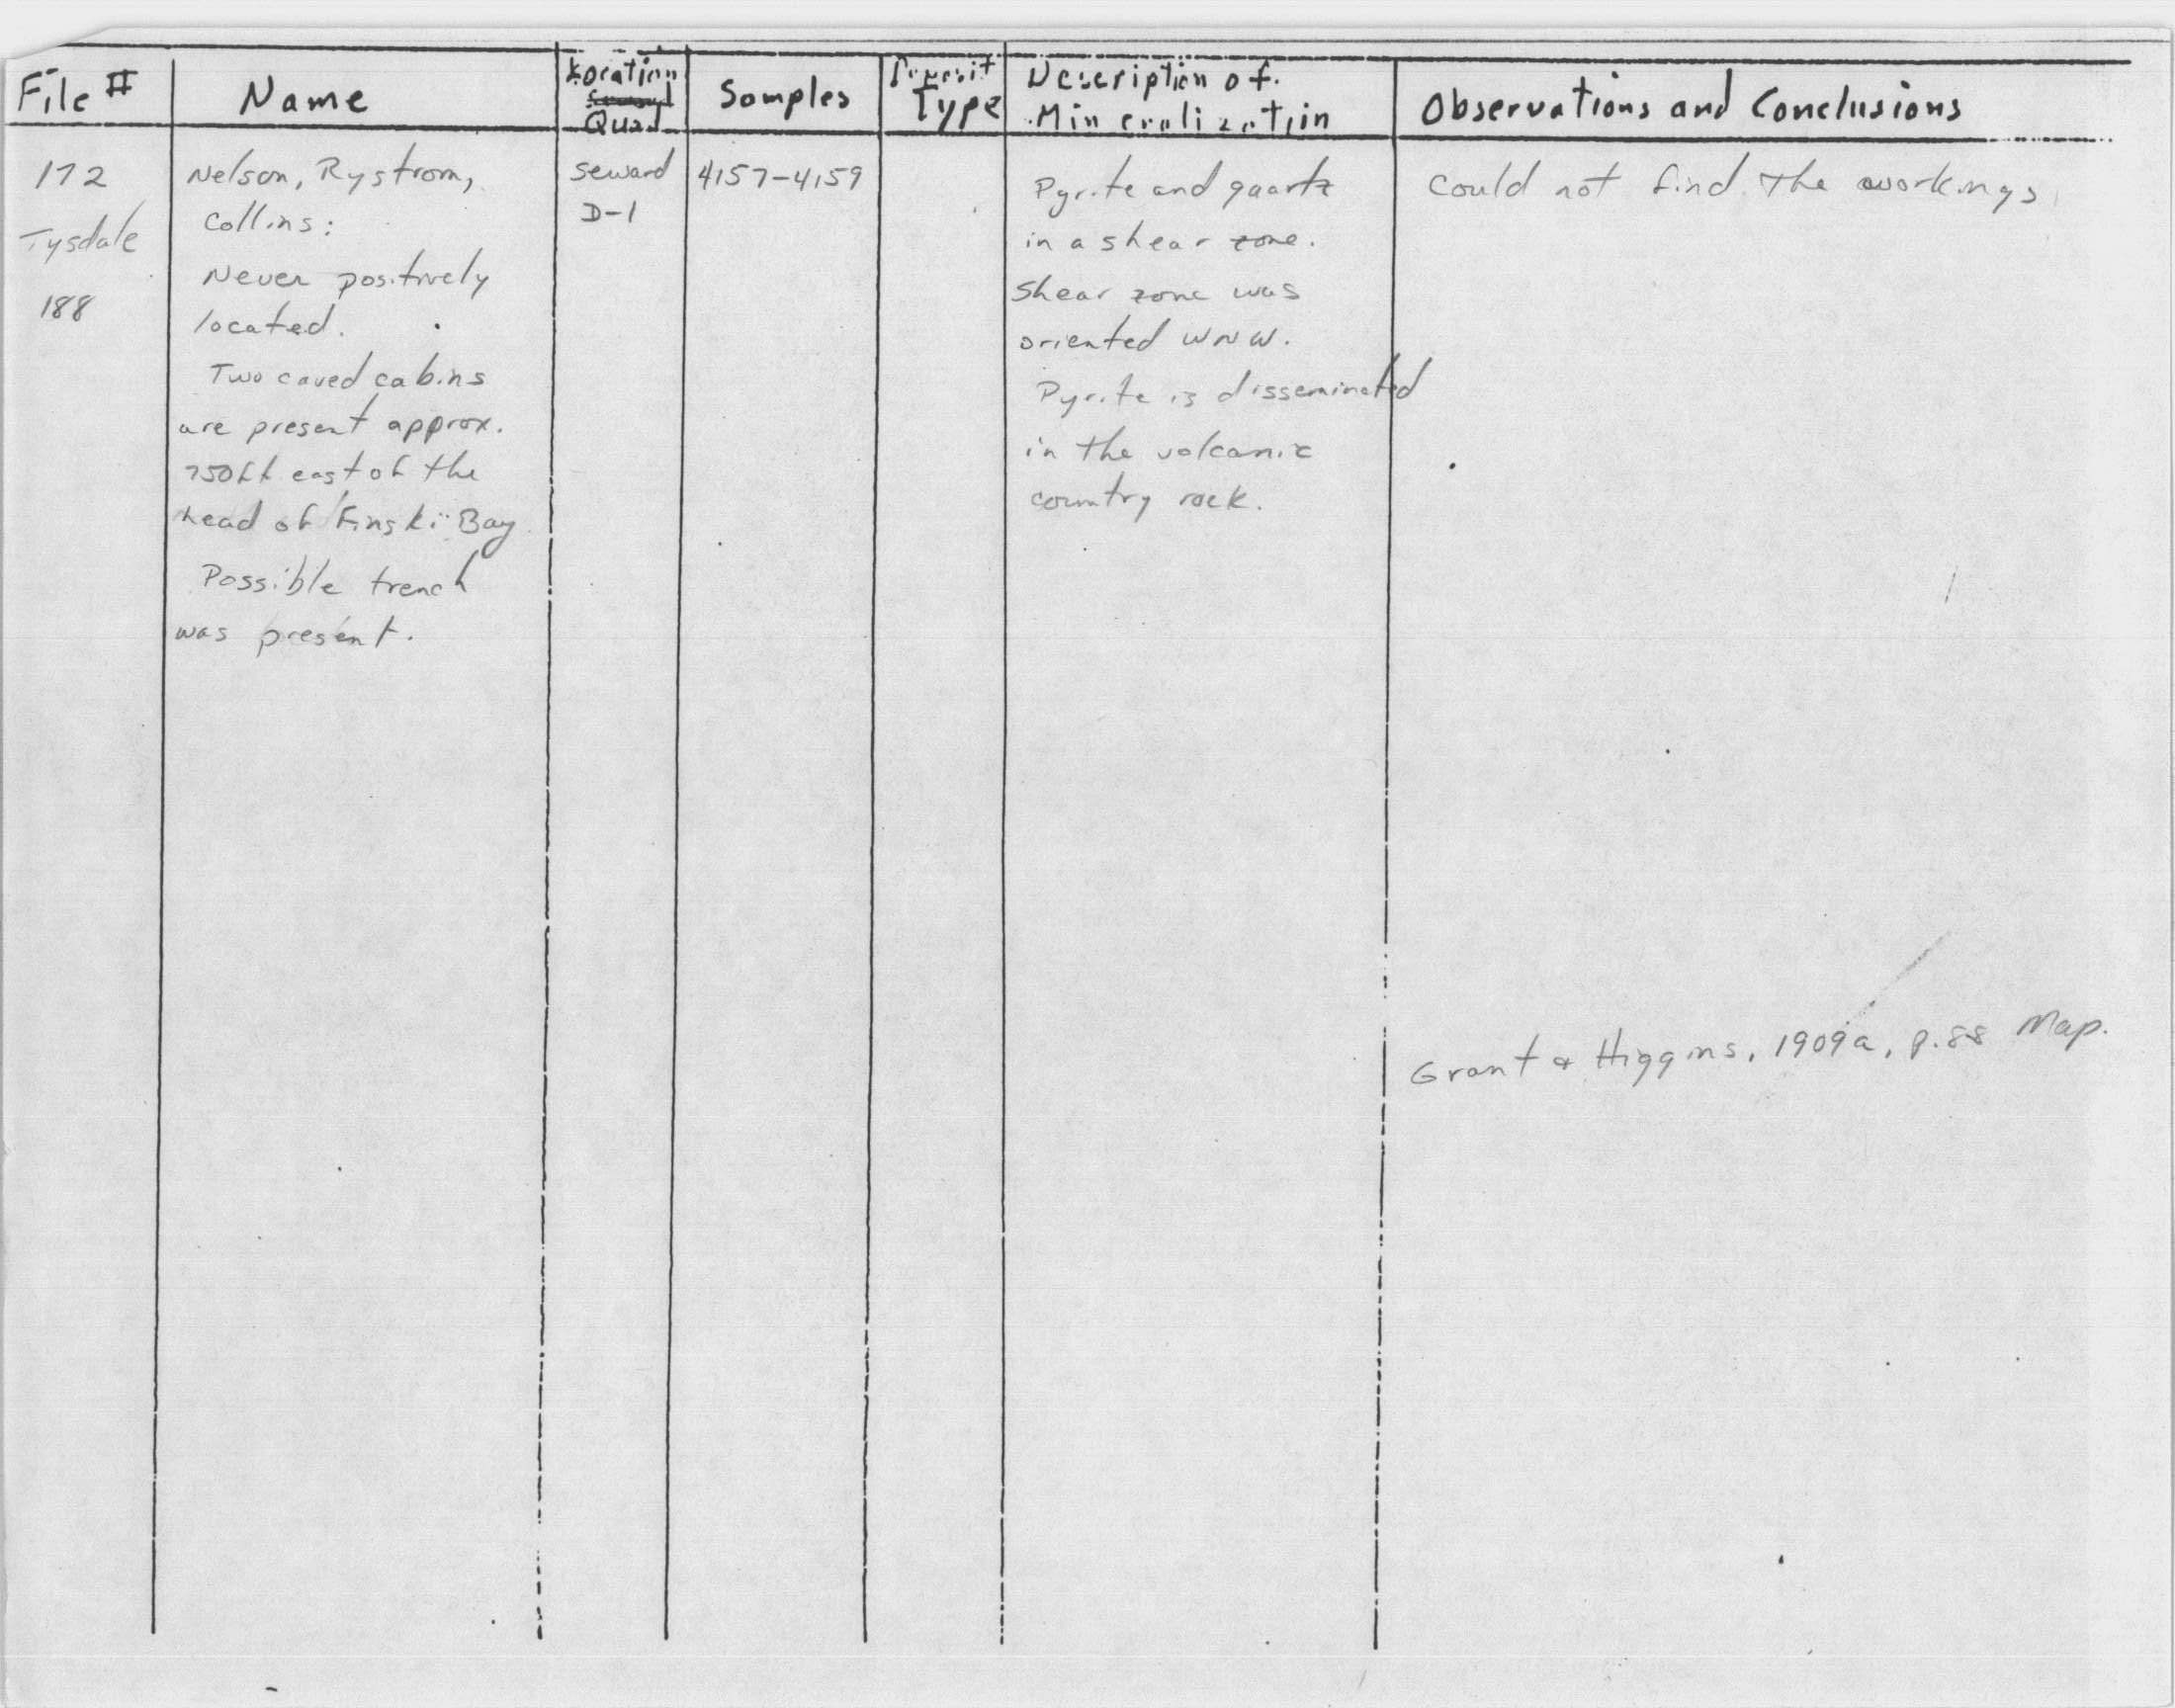 File #
Name
Location
Quad
Samples
Deposit
Type
Description of
Mineralization
Observations and Conclusions
172
Tysdale
188
Nelson, Rystrom,
Collins:
Never positively
located.
Two caved cabins
are present approx.
750ft east of the
head of Finski Bay
Possible trench
was present.
Seward
D-1
4157-4159
Pyrite and quartz
in a shear zone.
Shear zone was
oriented WNW.
Pyrite is disseminated
in the volcanic
country rock.
Could not find the workings
Grant & Higgins, 1909a, p.88 Map.